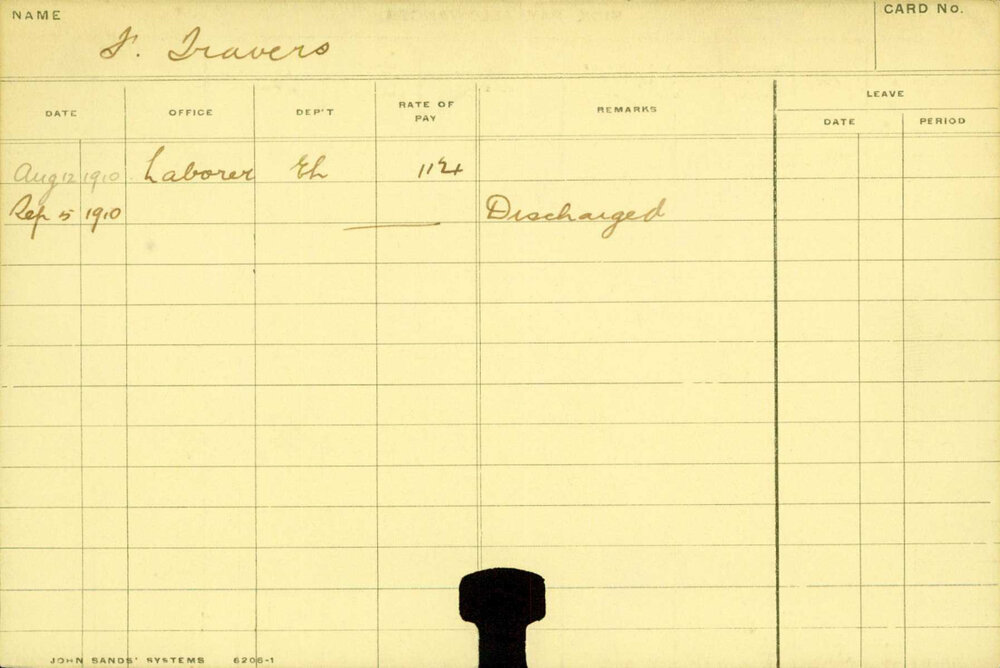 NAME
CARD No.
Travers
DATE OFFICE DEP'T RATE OF PAY REMARKS LEAVE
DATE PERIOD
Aug 12 1910 Laborer
Sep 5 1910 Discharged
JOHN SANDS' SYSTEMS 6206-1